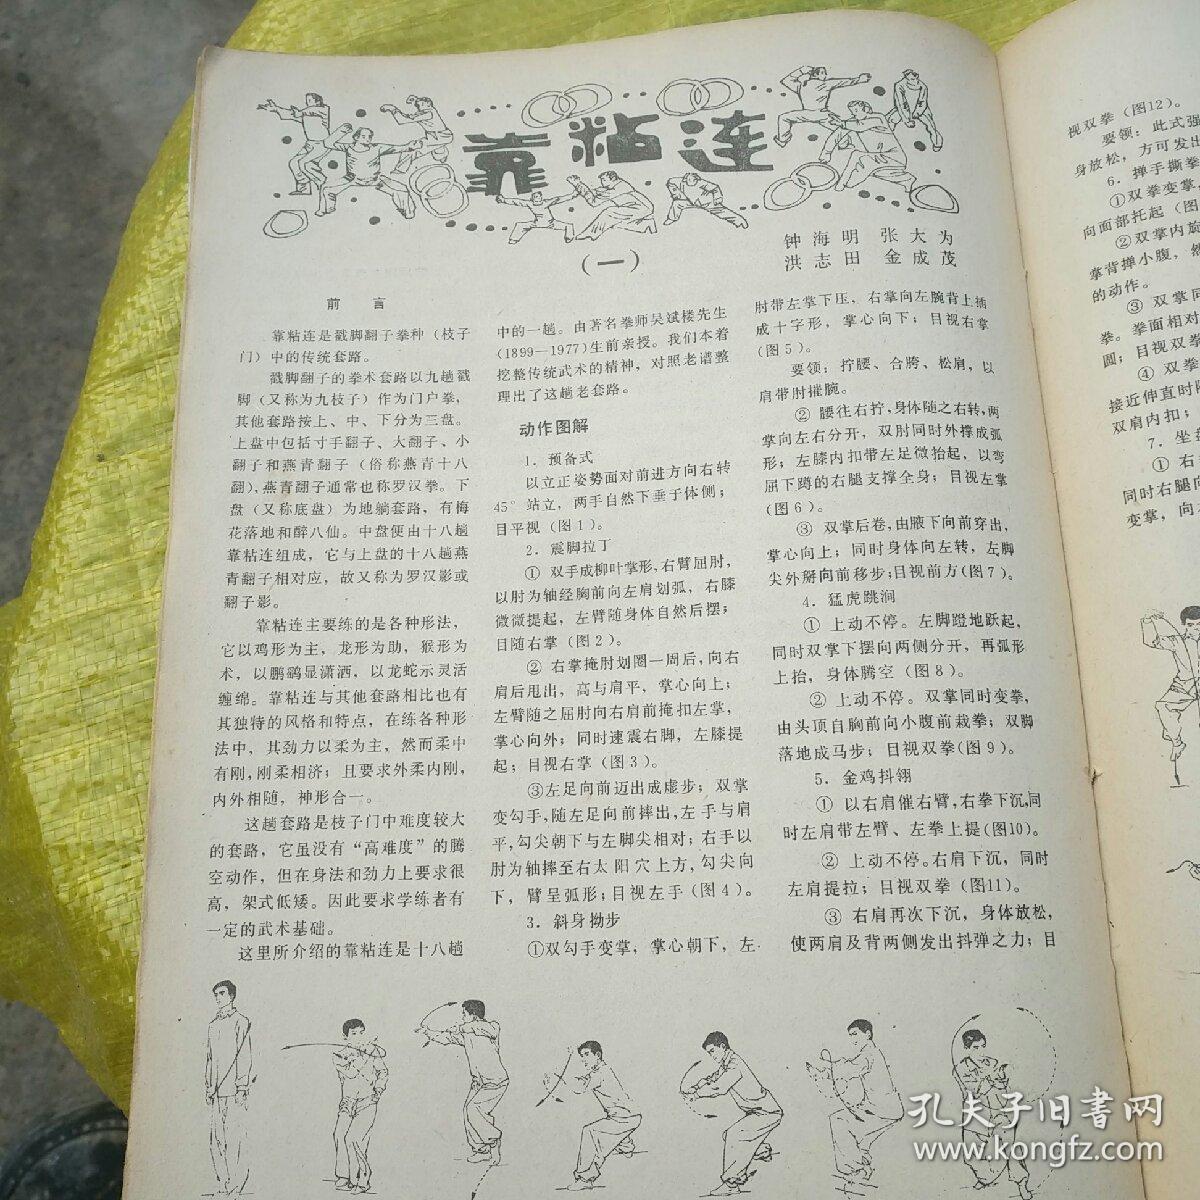 靠粘连
(一)
钟海明 张大为
洪志田 金成茂
前言
靠粘连是戳脚翻子拳种（枝子
门）中的传统套路。
戳脚翻子的拳术套路以九趟戳
脚（又称为九枝子）作为门户拳，
其他套路按上、中、下分为三盘。
上盘中包括寸手翻子、大翻子、小
翻子和燕青翻子（俗称燕青十八
翻）、燕青翻子通常也称罗汉拳。下
盘（又称底盘）为地躺套路，有梅
花落地和醉八仙。中盘便由十八趟
靠粘连组成，它与上盘的十八趟燕
青翻子相对应，故又称为罗汉影或
翻子影。
靠粘连主要练的是各种形法，
它以鸡形为主，龙形为助，猴形为
术，以鹏鹞显潇洒，以龙蛇示灵活
缠绵。靠粘连与其他套路相比也有
其独特的风格和特点，在练各种形
法中，其劲力以柔为主，然而柔中
有刚，刚柔相济；且要求外柔内刚，
内外相随，神形合一。
这趟套路是枝子门中难度较大
的套路，它虽没有“高难度”的腾
空动作，但在身法和劲力上要求很
高，架式低矮。因此要求学练者有
一定的武术基础。
这里所介绍的靠粘连是十八趟
中的一趟。由著名拳师吴斌楼先生
(1899—1977)生前亲授。我们本着
挖整传统武术的精神，对照老谱整
理出了这趟老套路。
动作图解
1．预备式
以立正姿势面对前进方向右转
45°站立，两手自然下垂于体侧；
目平视（图1）。
2．震脚拉丁
① 双手成柳叶掌形，右臂屈肘，
以肘为轴经胸前向左肩划弧，右膝
微微提起，左臂随身体自然后摆；
目随右掌（图2）。
② 右掌掩肘划圈一周后，向右
肩后甩出，高与肩平，掌心向上；
左臂随之屈肘向右肩前掩扣左掌，
掌心向外；同时速震右脚，左膝提
起；目视右掌（图3）。
③左足向前迈出成虚步；双掌
变勾手，随左足向前摔出，左手与肩
平，勾尖朝下与左脚尖相对；右手以
肘为轴摔至右太阳穴上方，勾尖向
下，臂呈弧形；目视左手（图4）。
3．斜身拗步
①双勾手变掌，掌心朝下，左
肘带左掌下压，右掌向左腕背上插
成十字形，掌心向下；目视右掌
（图5）。
要领：拧腰、合胯、松肩，以
肩带肘摧腕。
② 腰往右拧，身体随之右转，两
掌向左右分开，双肘同时外撑成弧
形；左膝内扣带左足微抬起，以弯
屈下蹲的右腿支撑全身；目视左掌
（图6）。
③ 双掌后卷，由腋下向前穿出，
掌心向上；同时身体向左转，左脚
尖外掰向前移步；目视前方（图7）。
4．猛虎跳涧
① 上动不停。左脚蹬地跃起，
同时双掌下摆向两侧分开，再弧形
上抬，身体腾空（图8）。
② 上动不停。双掌同时变拳，
由头顶自胸前向小腹前栽拳；双脚
落地成马步；目视双拳（图9）。
5．金鸡抖翎
① 以右肩催右臂，右拳下沉，同
时左肩带左臂、左拳上提（图10）。
② 上动不停。右肩下沉，同时
左肩提拉；目视双拳（图11）。
③ 右肩再次下沉，身体放松，
使两肩及背两侧发出抖弹之力；目
视双拳（图12）。
要领：此式强
身放松，方可发出
6．掸手撕拳
①双拳变掌
向面部托起（图
②双掌内旋
掌背掸小腹，然
的动作。
③ 双掌同
拳。拳面相对
圆；目视双拳
④ 双拳
接近伸直时
双肩内扣；
7．坐盘
① 右
同时右腿向
变掌，向
孔夫子旧书网
www.kongfz.com